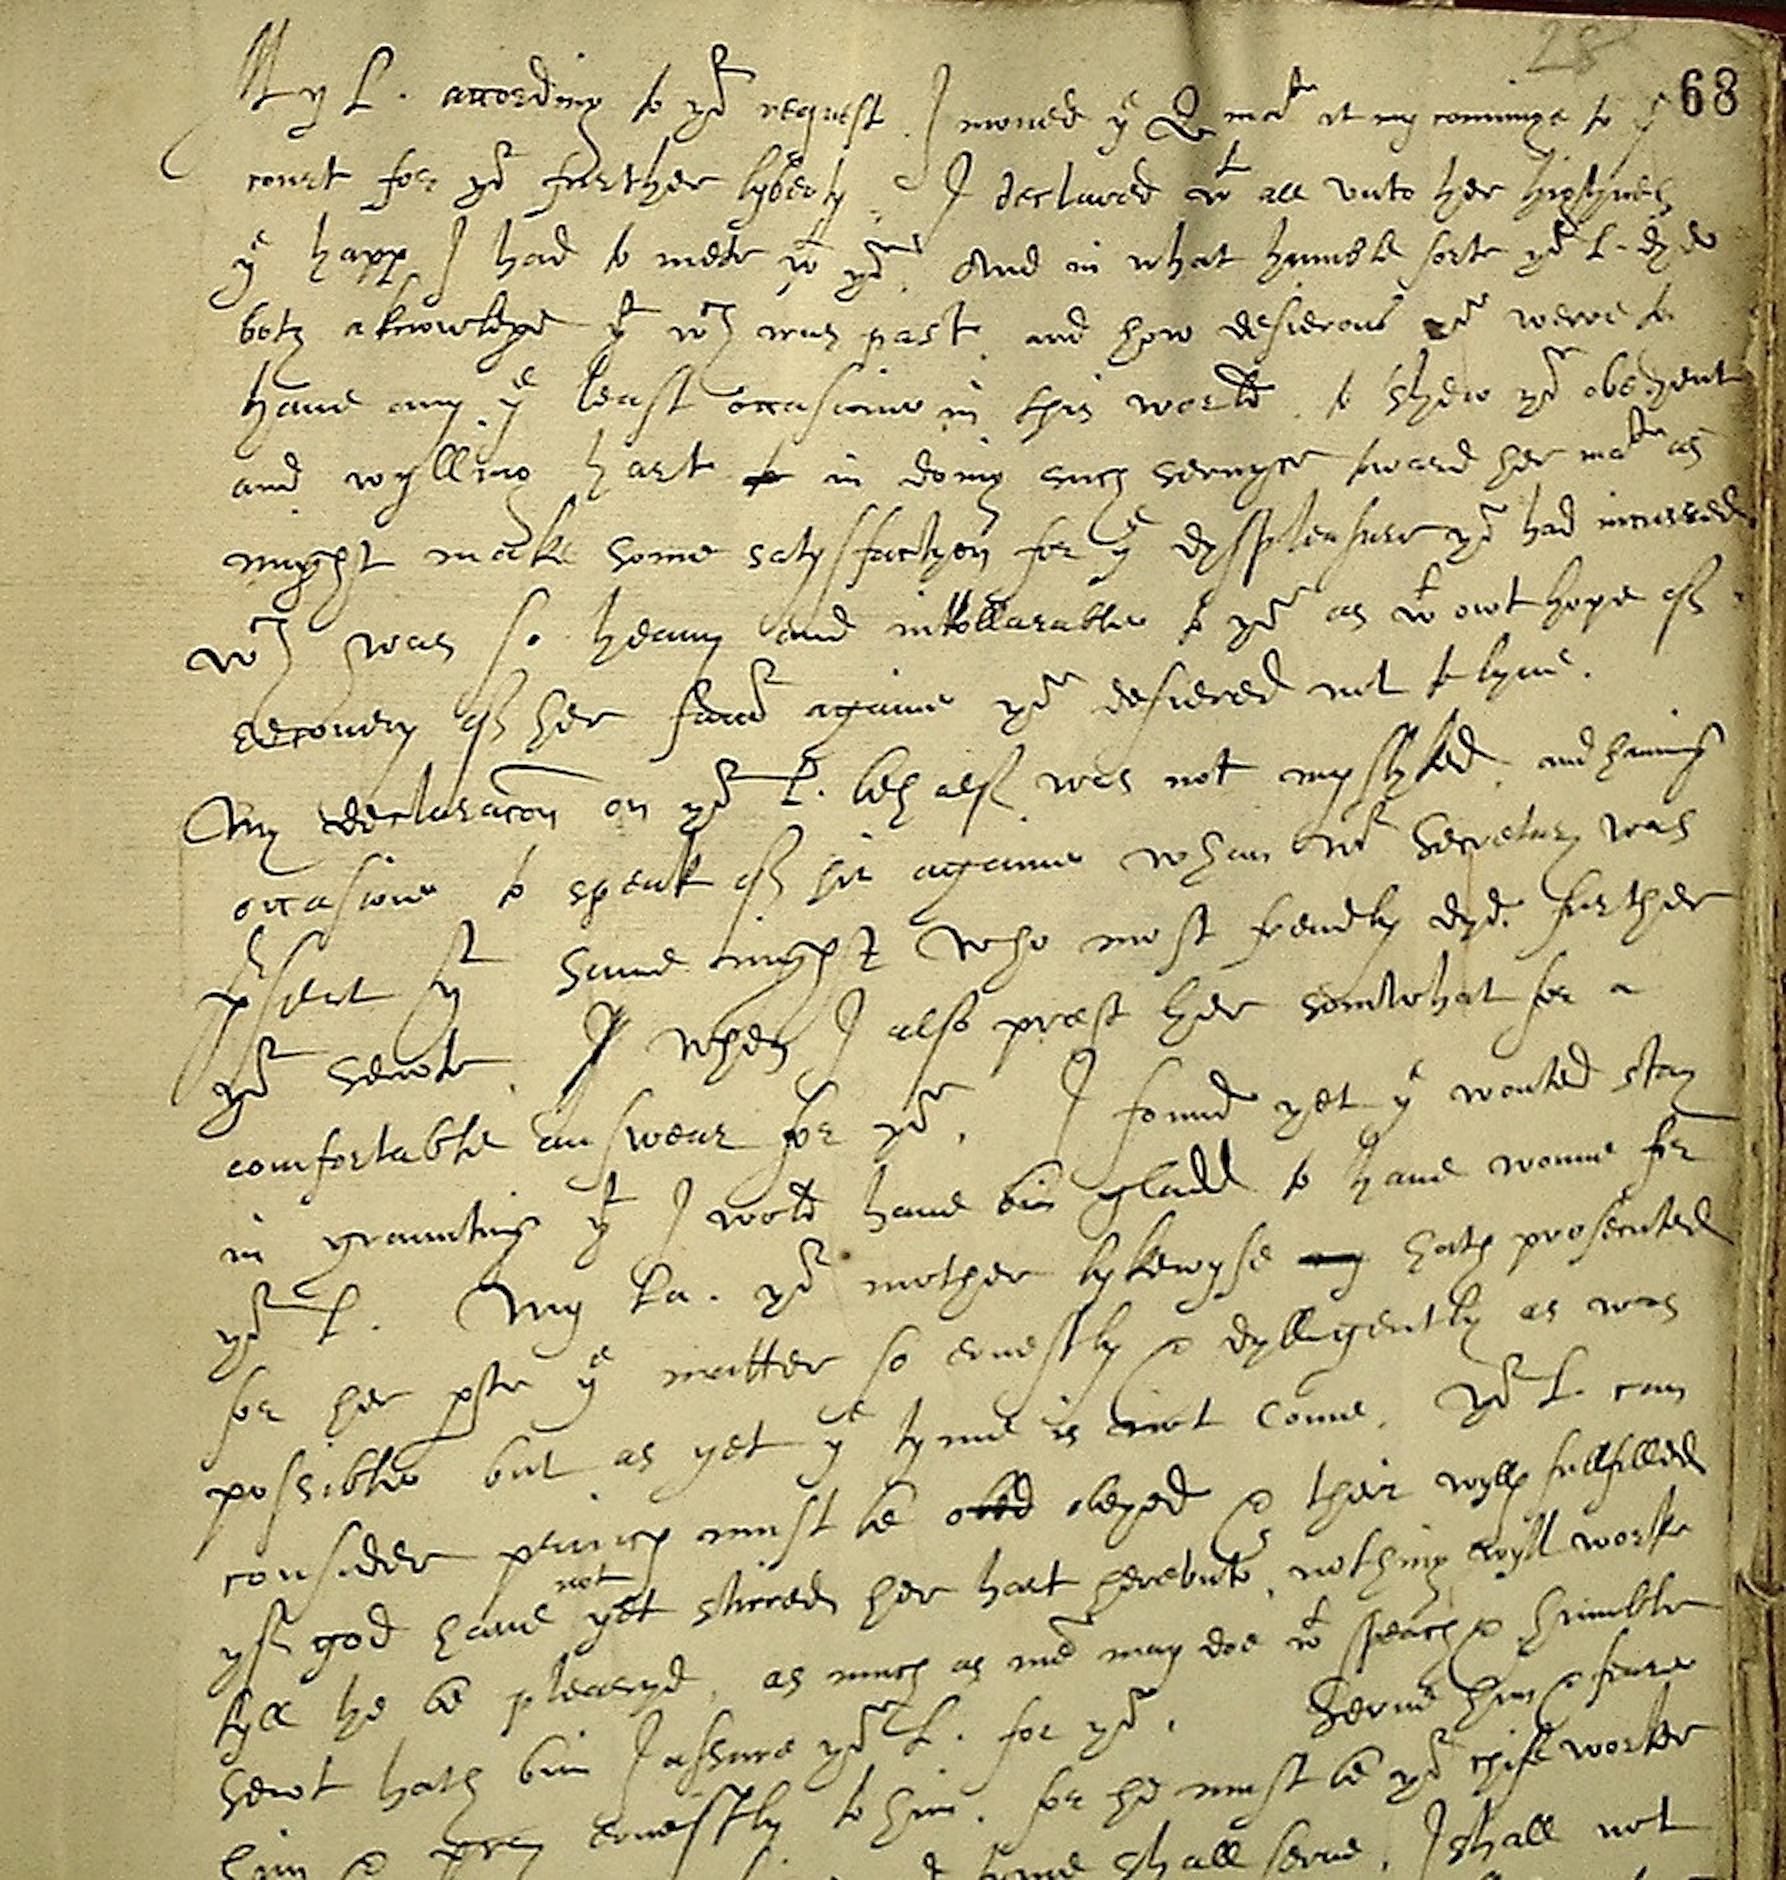 28
68
My L. according to yor request I moued ye Q matie at my cominge to ye
court for yor further lyberty. I declared wt all vnto her highnes
ye happ I had to mete wt you. And in what humble sorte yor L. dyd
both aknowledge yt wch was past, and how desierous you were to
haue any ye least occasione in this world to shew yor obeyent
and wylling hart to in doing such servyce toward her matie as
might make some satysfactyon for ye dyspleasure you had incurred
wch was so heauy and intollarable to you as wt owt hope off
recouery off her fauor againe you desiered not to lyue.
My declaracon on yor L. behalf was not myslyked, and hauing
occasione to speak off hit againe whan mr Secretary was
psent ye same night who most frendly dyd further
yor sewte. I when I also prest her somwhat for a
comfortable answear for you. I found yet ye wonted stay
in graunting yt I wold haue bin gladd to haue wonne for
yor L. My La. yor mother lykewyse hath prosecuted
for her pte ye matter so ernestly & dylligently as was
possible but as yet ye tyme is not come. Yor L. can
consider princs must be obed obeyed & their wylls fullfilled
yff god haue not yet stirred her hart herevnto, nothing wyll worke
tyll he be pleasyd, as much as me may doe wt speach & humble
sewt hath bin I assure yor L. for you. Serue him & feare
him & pray ernestly to him. for he must be yor chife worker
tyme shall serue, I shall not